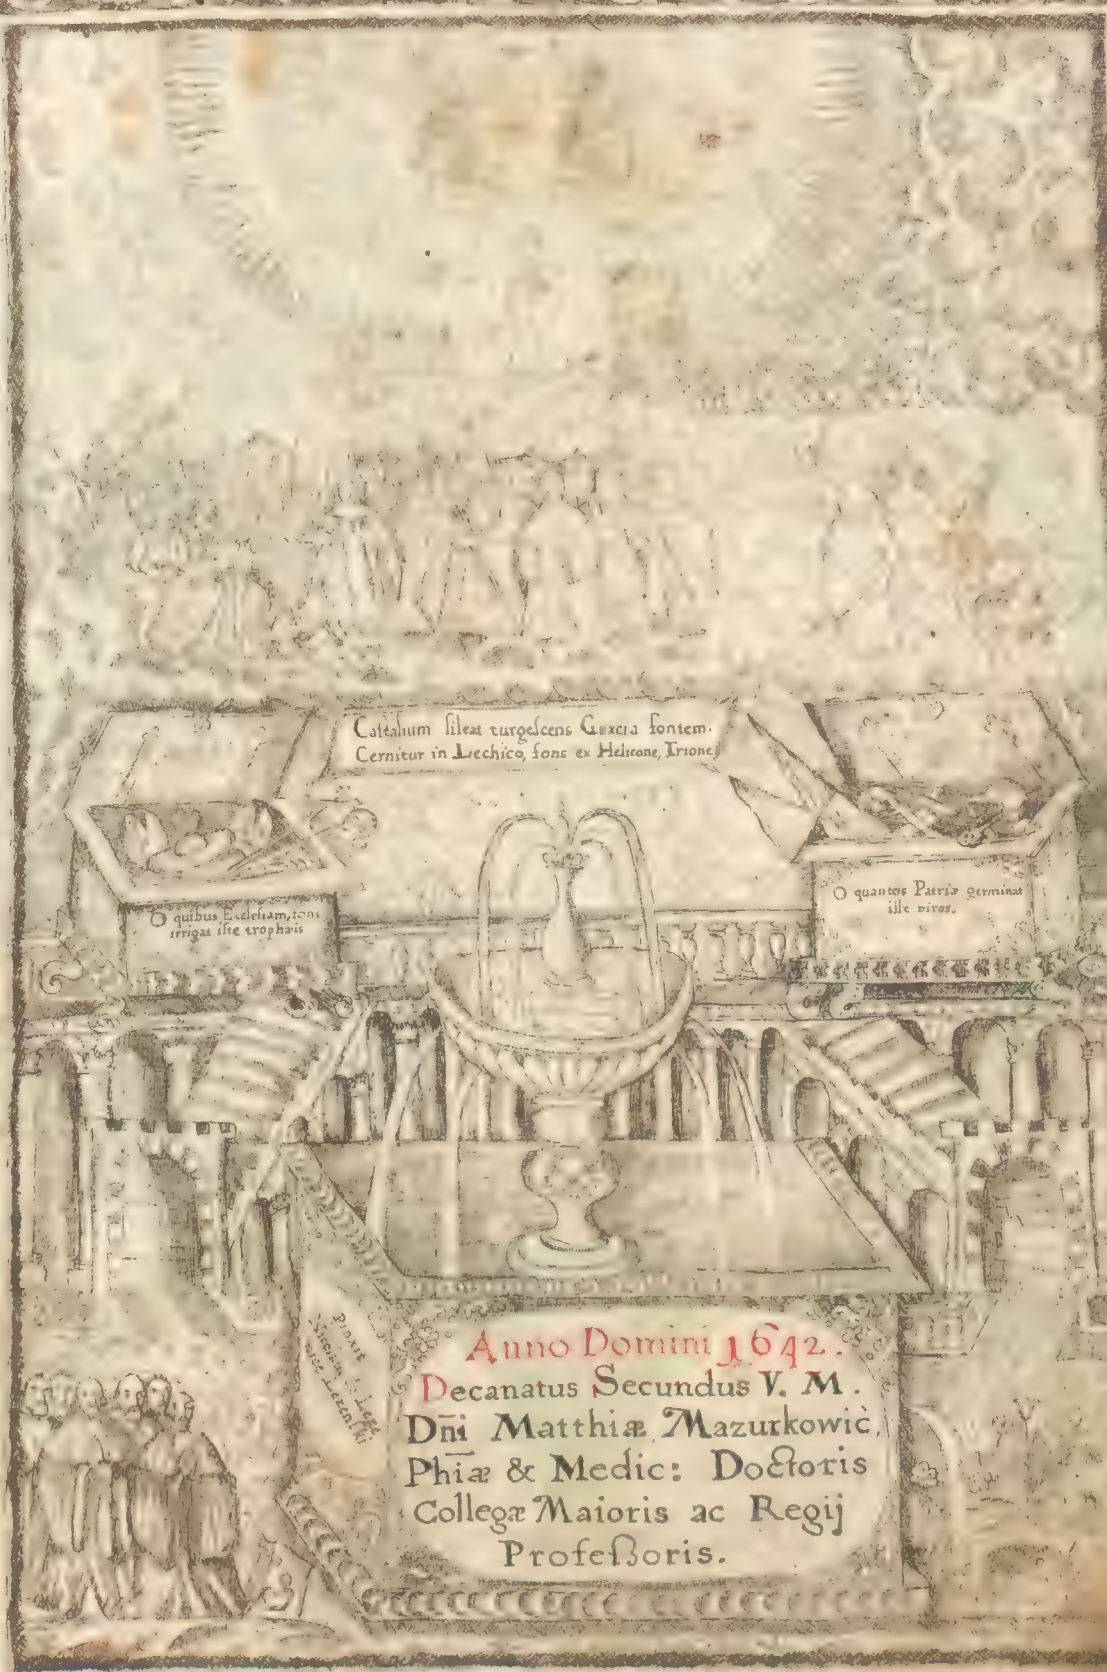 Castalium sileat turgescens Græcia fontem.
Cernitur in Lechico, fons ex Helicone, Trione,
O quibus Ecclesiam, fons
irrigat iste trophæis
O quantos Patriæ germinat
ille viros.
Pinxit
Anno Domini 1642.
Decanatus Secundus V. M.
Dn̄i Matthiæ Mazurkowic,
Phīæ & Medic: Doctoris
Collegæ Maioris ac Regij
Profeßoris.